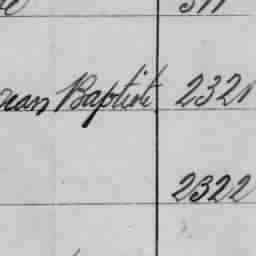 Jean Baptiste 2321
2322